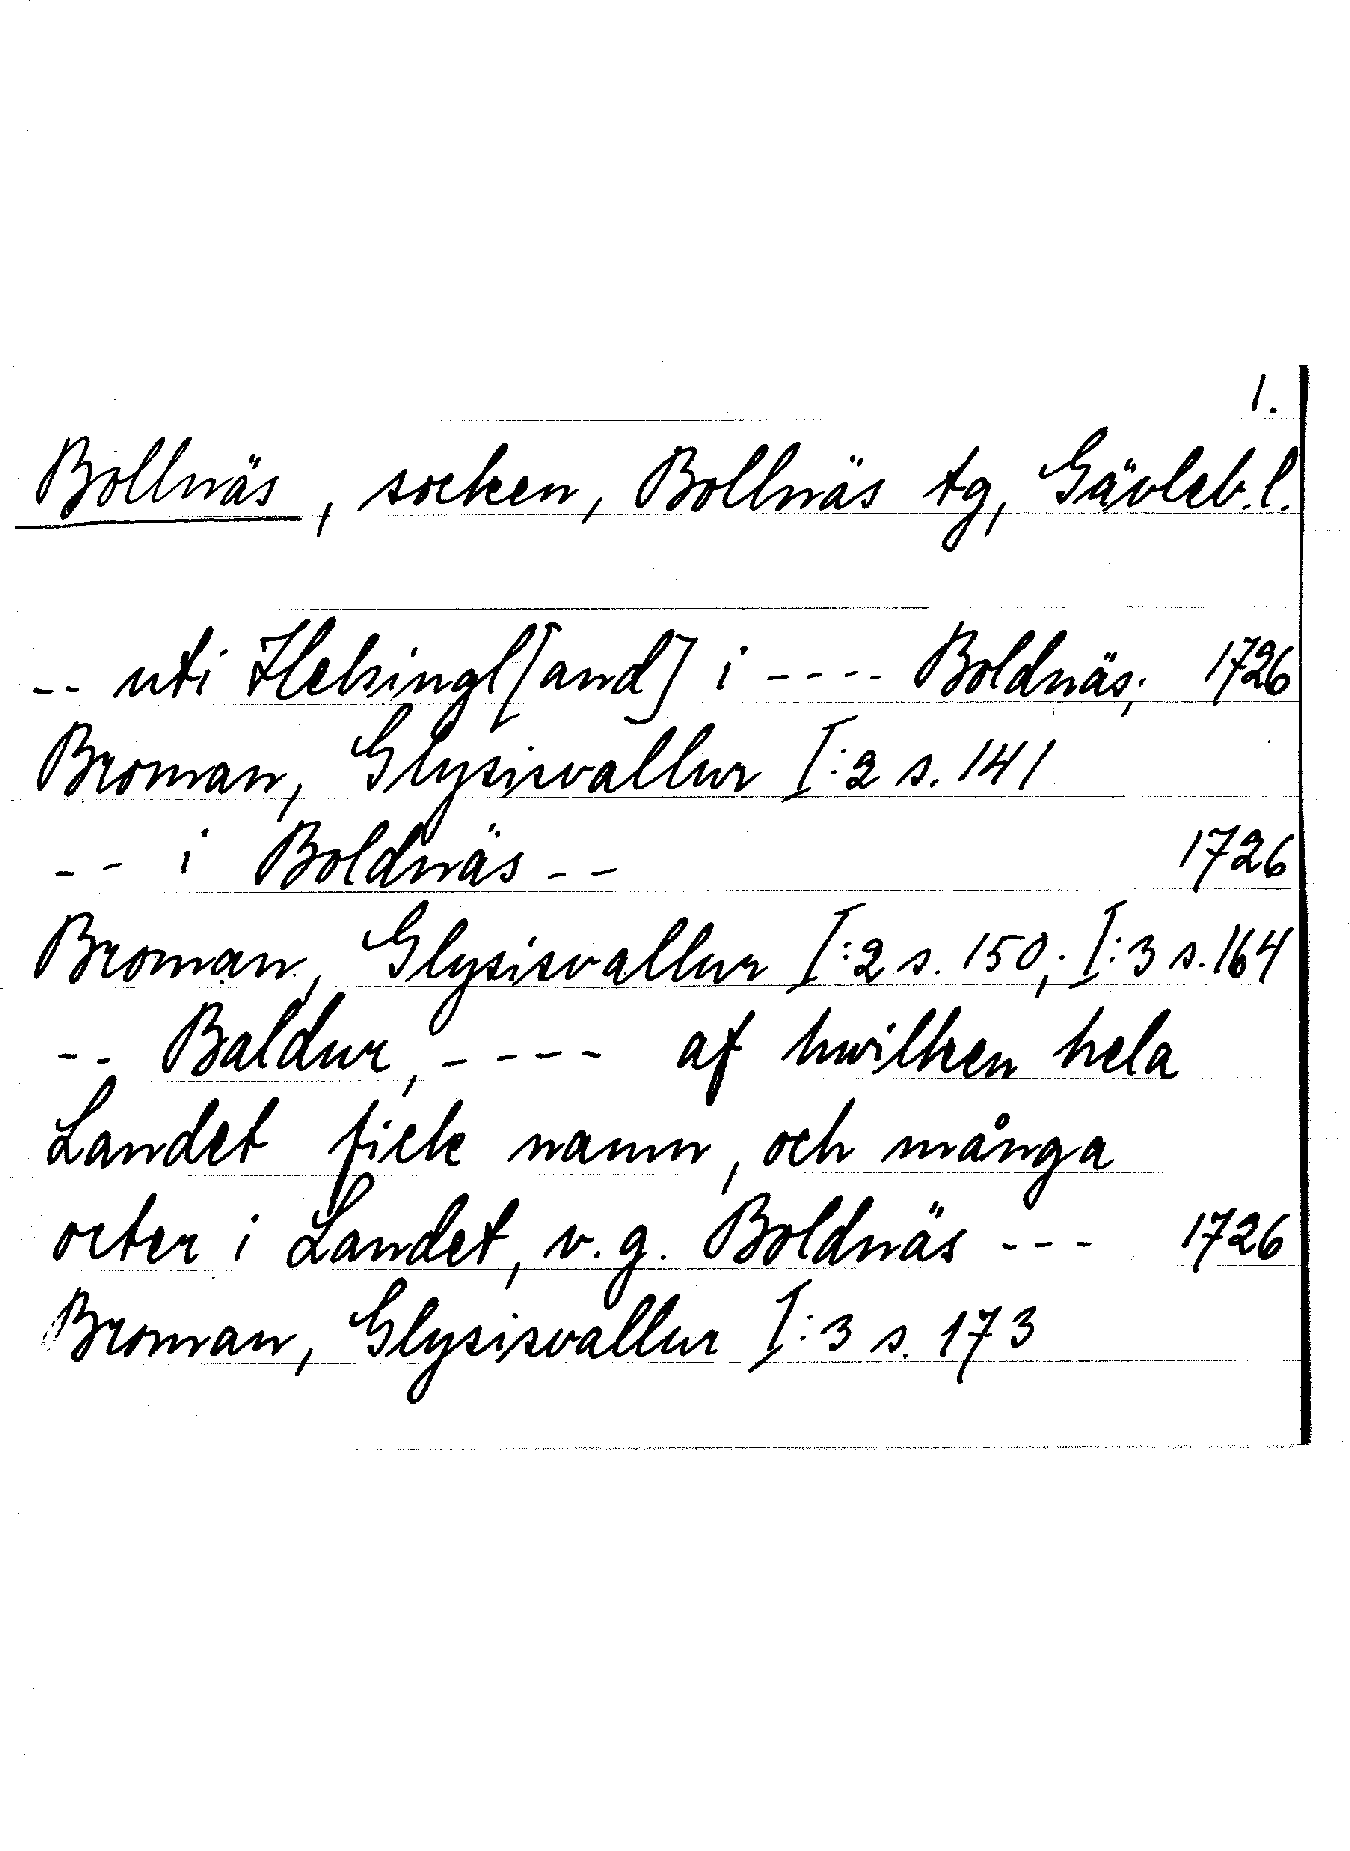 1.
Bollnäs, socken, Bollnäs tg, Gävleb.l.
-- uti Helsingl[and] i ---- Boldnäs; 1726
Broman, Glysisvallur I:2 s. 141
-- i Boldnäs -- 1726
Broman, Glysisvallur I:2 s. 150; I:3 s. 164
-- Baldur, ---- af hwilken hela
Landet fick namn, och många
orter i Landet, v.g. Boldnäs --- 1726
Broman, Glysisvallur I:3 s. 173